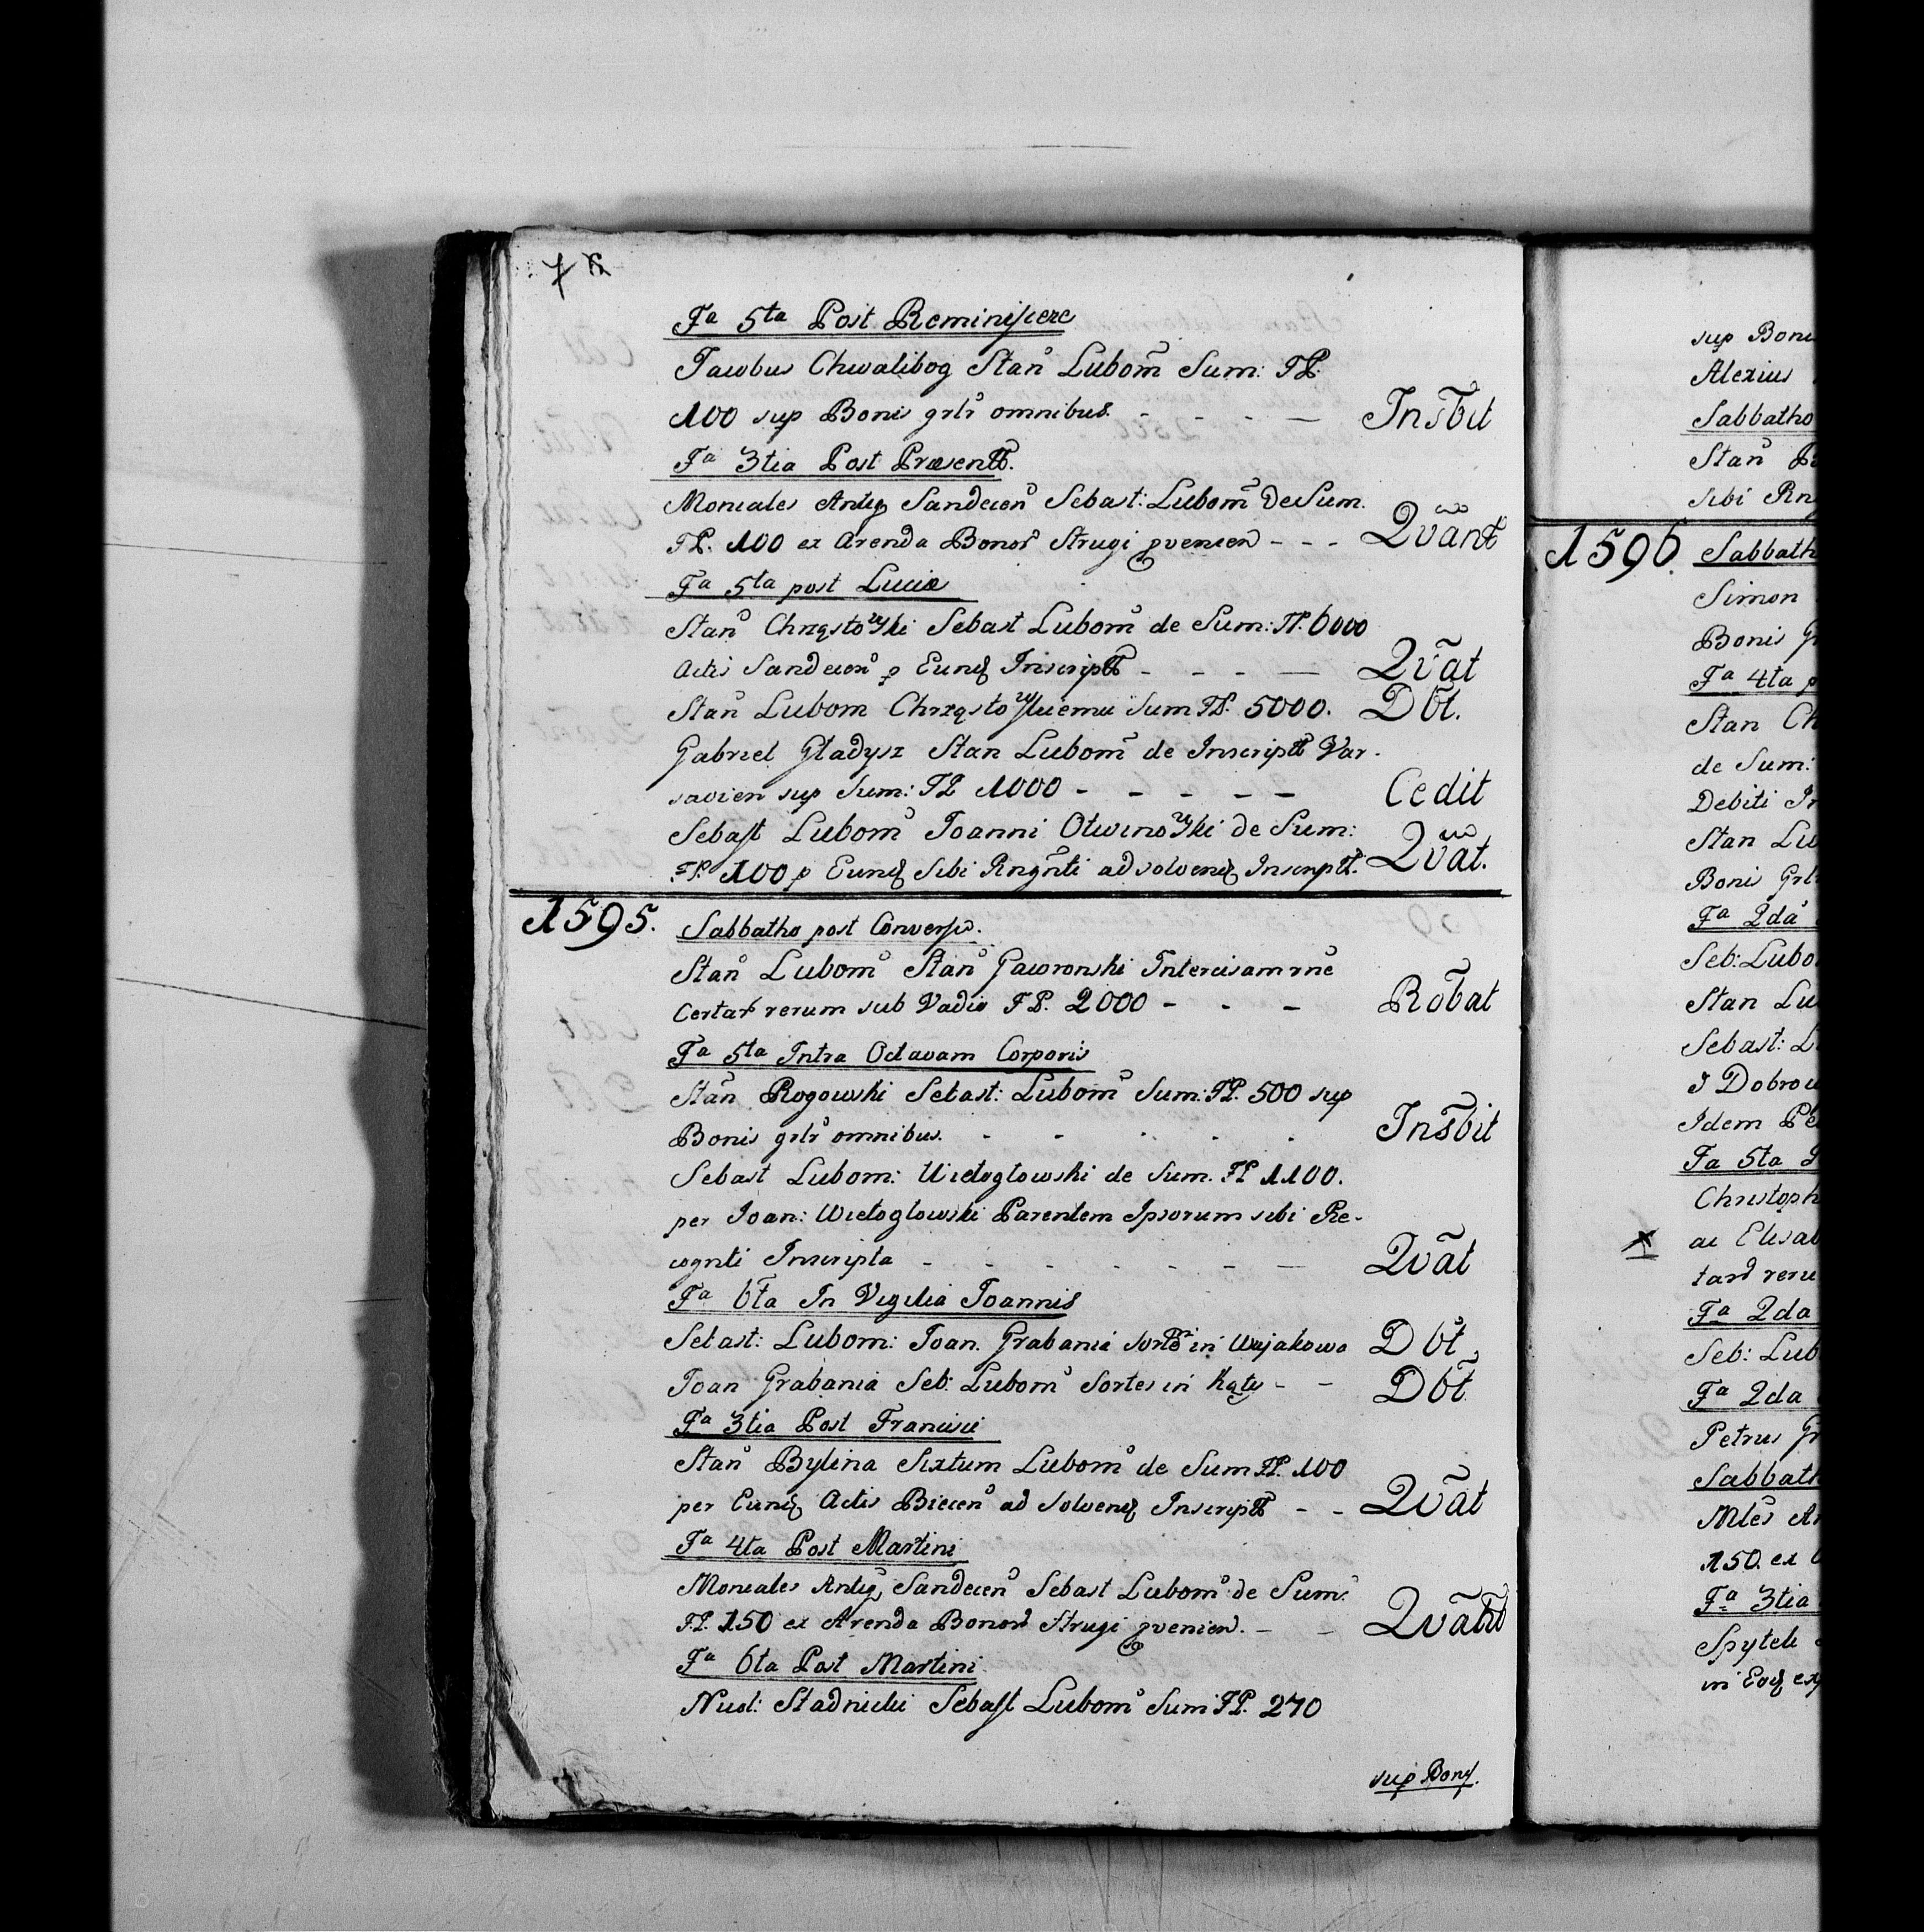 Fa 5ta Post Reminiscere
Jacobus Chwalibog Stan Lubom Sum: FP.
100 sup Bonis grlr omnibus. - - - — Insbit
Fa 3tia Post Præsentt.
Moneales Antiq Sandecen Sebast: Lubom de Sum.
FP. 100 ex Arenda Bonor Strugi pvenien - - - Qvant
Fa 5ta post Luciæ
Stan Chrząstowski Sebast Lubom de Sum: FP. 6000
Actis Sandecen p Eund Inscript - - - — Qvat
Stan Lubom Chrząstowskiemu Sum FP. 5000. Dbt.
Gabriel Gładysz Stan Lubom de Inscript Var-
savien sup Sum: FP 1000 - - - - - Cedit
Sebast Lubom Joanni Otwinowski de Sum:
FP. 100 p Eund Sibi Rngnti ad solvend Inscript. Qvat.
1595. Sabbatho post Convers.
Stan Lubom Stan Gaworonski Intercisam rne
Certar rerum sub Vadio FP. 2000 - - - Robat
Fa 5ta Intra Octavam Corporis
Stan Rogowski Sebast: Lubom Sum: FP. 500 sup
Bonis grlr omnibus. - - - - - Insbit
Sebast Lubom: Wieloglowski de Sum. FP 1100.
per Joan: Wieloglowski Parentem Ipsorum sibi Re-
cognti Inscripta - - - - - - - Qvat
Fa 6ta In Vigilia Joannis
Sebast: Lubom: Joan. Grabania sort in Wujakowa Dbt
Joan Grabania Seb: Lubom Sortes in Kąty - - Dbt
Fa 3tia Post Francisci
Stan Bylina Sixtum Lubom de Sum FP. 100
per Eund Actis Biecen ad Solvend Inscript - - Qvat
Fa 4ta Post Martini
Moneales Antiq Sandecen Sebast Lubom de Sum:
FP. 150 ex Arenda Bonor Strugi pvenien. - - Qvant
Fa 6ta Post Martini
Nicol: Stadnicki Sebast Lubom Sum FP. 270
sup Bons.
sup Bonis
Alexius
Sabbatho
Stan
sibi Rng
1596. Sabbath
Simon
Bonis Gr
Fa 4ta p
Stan Ch
de Sum:
Debiti In
Stan Lu
Bonis Grl
Fa 2da
Seb: Lubo
Stan Lu
Sebast: L
J Dobrow
Idem Pe
Fa 5ta
Christoph
ac Elisab
tard reru
Fa 2da
Seb: Lub
Fa 2da
Petrus Gr
Sabbath
Mles An
150. ex
Fa 3tia
Spytek
in Eod